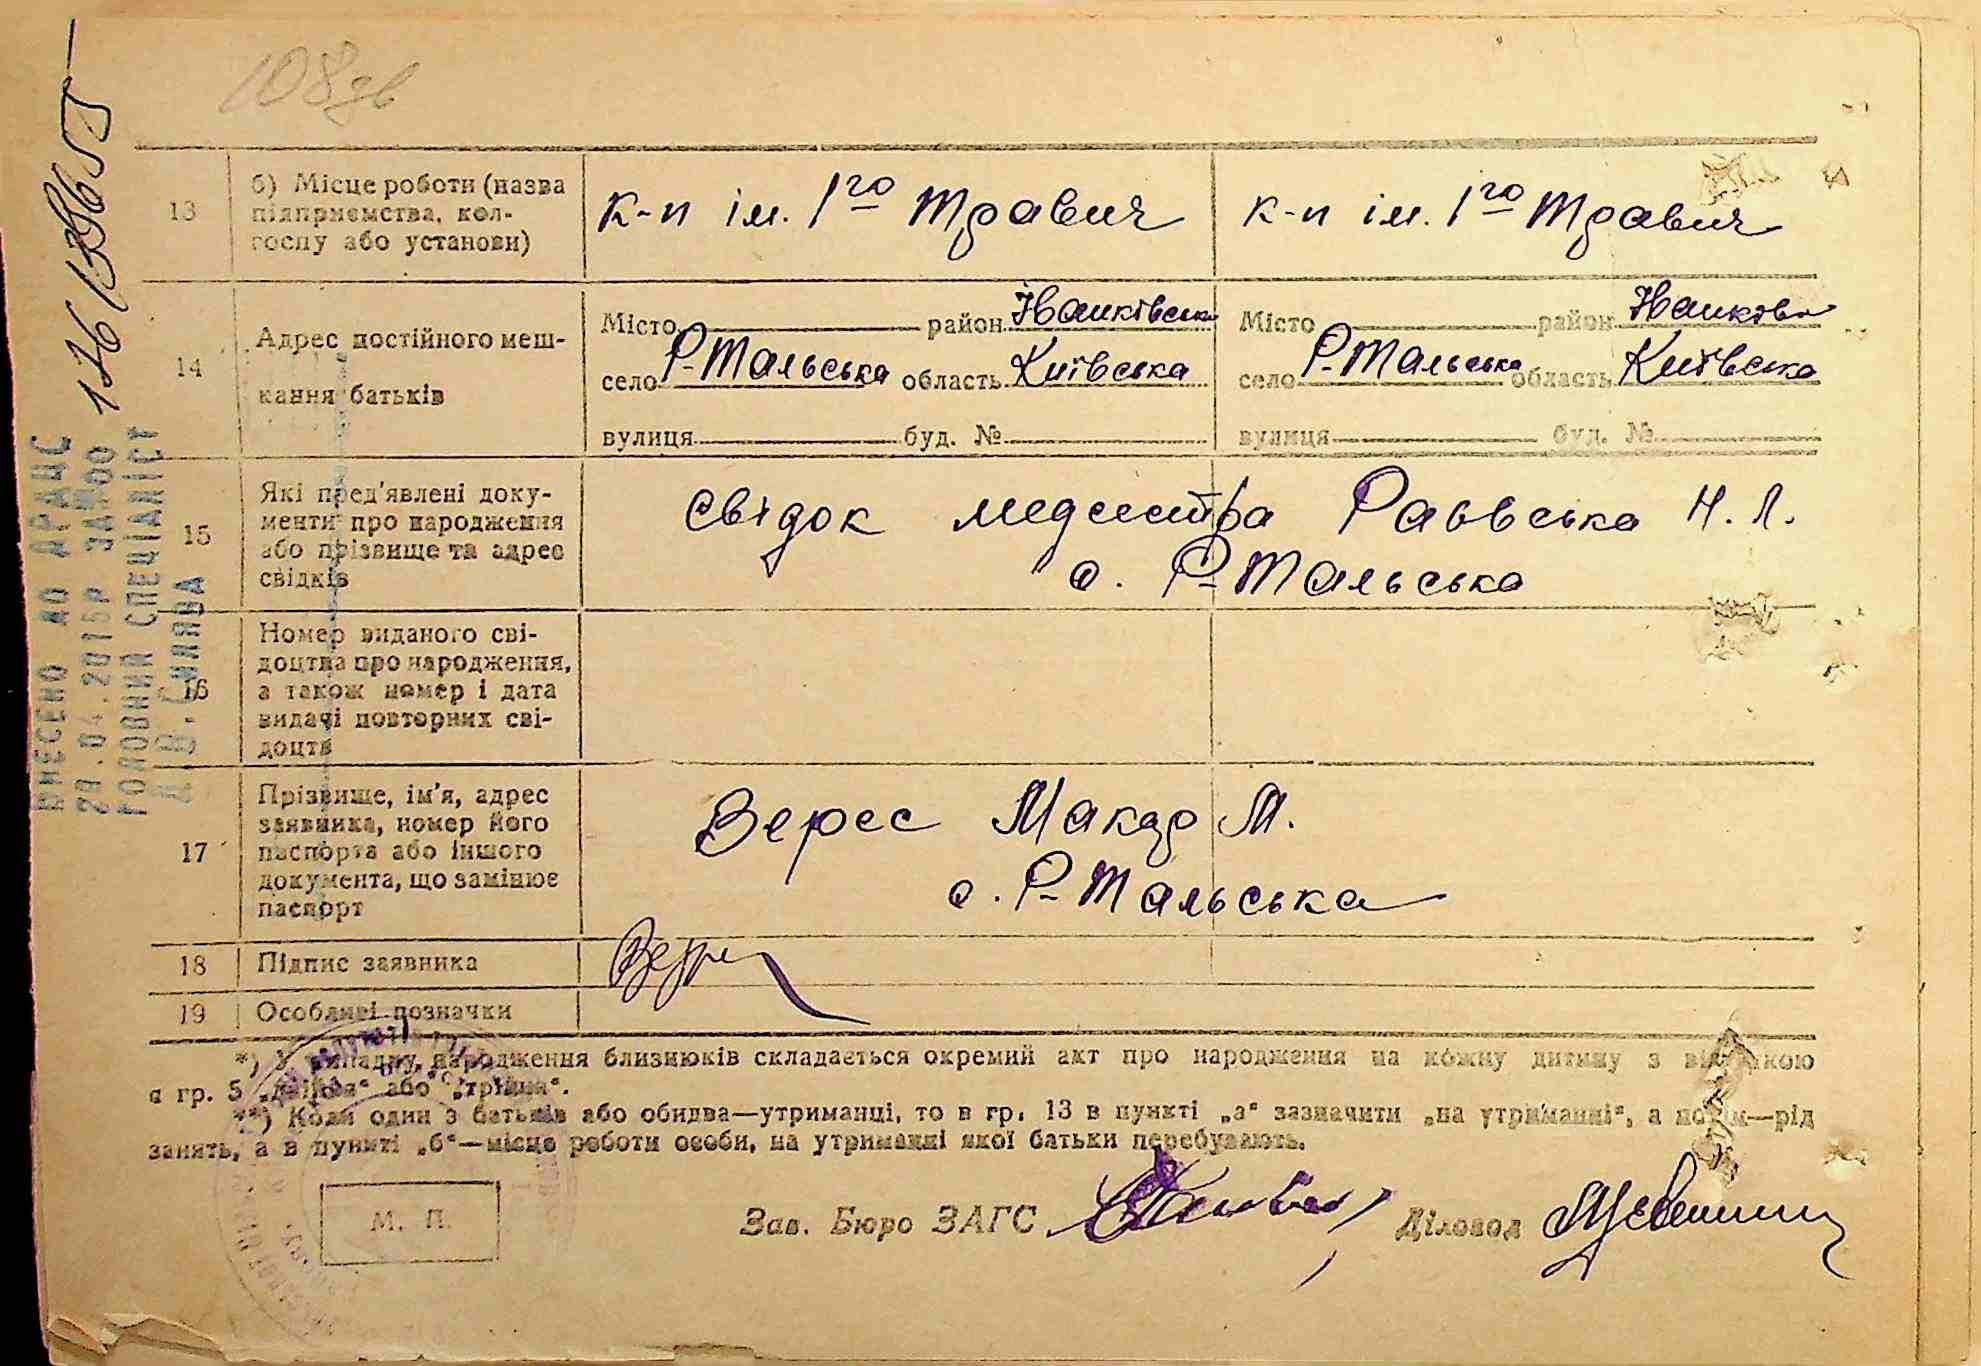 108 зв
126/33655
ВНЕСЕНО ДО ДРАЦС
29.04.2015Р ЗА №00
ГОЛОВНИЙ СПЕЦІАЛІСТ
13 б) Місце роботи (назва підприємства, кол-госпу або установи)
к-п ім. 1го Травня
к-п ім. 1го Травня
14 Адрес постійного меш-
кання батьків
Місто район Іванківськ
село Р-Тальська область Київська
вулиця буд. №
Місто район Іванков
село Р-Тальська область Київська
вулиця буд. №
15 Які пред'явлені доку-
менти про народження
або прізвище та адрес
свідків
Свідок медсестра Раєвська Н. Л.
с. Р-Тальська
16 Номер виданого сві-
доцтва про народження,
а також номер і дата
видачі повторних сві-
доцтв
17 Прізвище, ім'я, адрес
заявника, номер його
паспорта або іншого
документа, що замінює
паспорт
Верес Макар М.
с. Р-Тальська
18 Підпис заявника
Верес
19 Особливі позначки
*) У випадку народження близнюків складається окремий акт про народження на кожну дитину з відміткою
в гр. 5 „двійня“ або „трійня“.
**) Коли один з батьків або обидва—утриманці, то в гр. 13 в пункті „а“ зазначити „на утриманні“, а потім—рід
занять, а в пункті „б“—місце роботи особи, на утриманні якої батьки перебувають.
М. П.
Зав. Бюро ЗАГС
Діловод